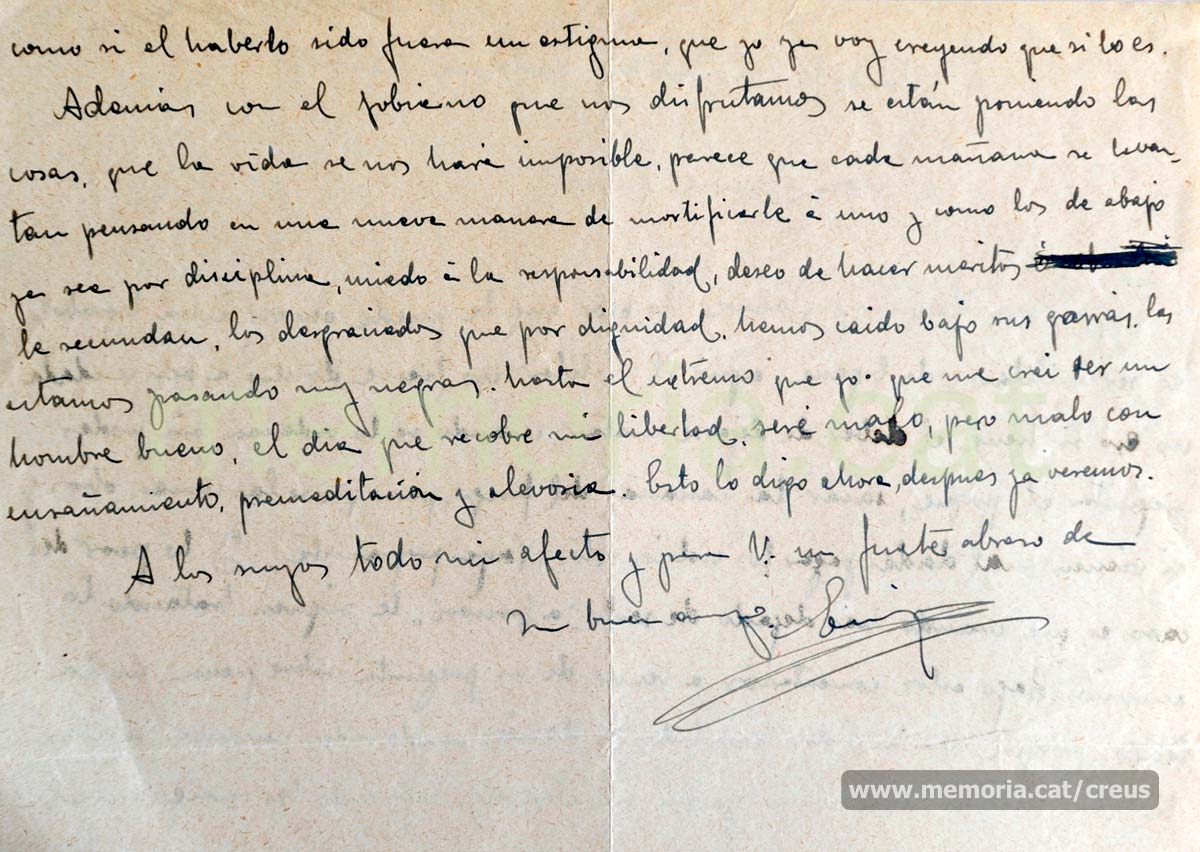 como si el haberlo sido fuera un estigma, que yo ya voy creyendo que si lo es.
Además con el gobierno que nos disfrutamos se están poniendo las
cosas, que la vida se nos hará imposible, parece que cada mañana se levan-
tan pensando en una nueva manera de mortificarle á uno y como los de abajo
ya sea por disciplina, miedo á la responsabilidad, deseo de hacer meritos
le secundan, los desgraciados que por dignidad, hemos caido bajo sus garras, las
estamos pasando muy negras. hasta el extremo que yo. que me crei ser un
hombre bueno, el dia que recobre mi libertad, seré malo, pero malo con
ensañamiento, premeditación y alevosia. Esto lo digo ahora, despues ya veremos.
A los suyos todo mi afecto y para V. un fuerte abraso de
su buen amigo.
memoria.cat
www.memoria.cat/creus